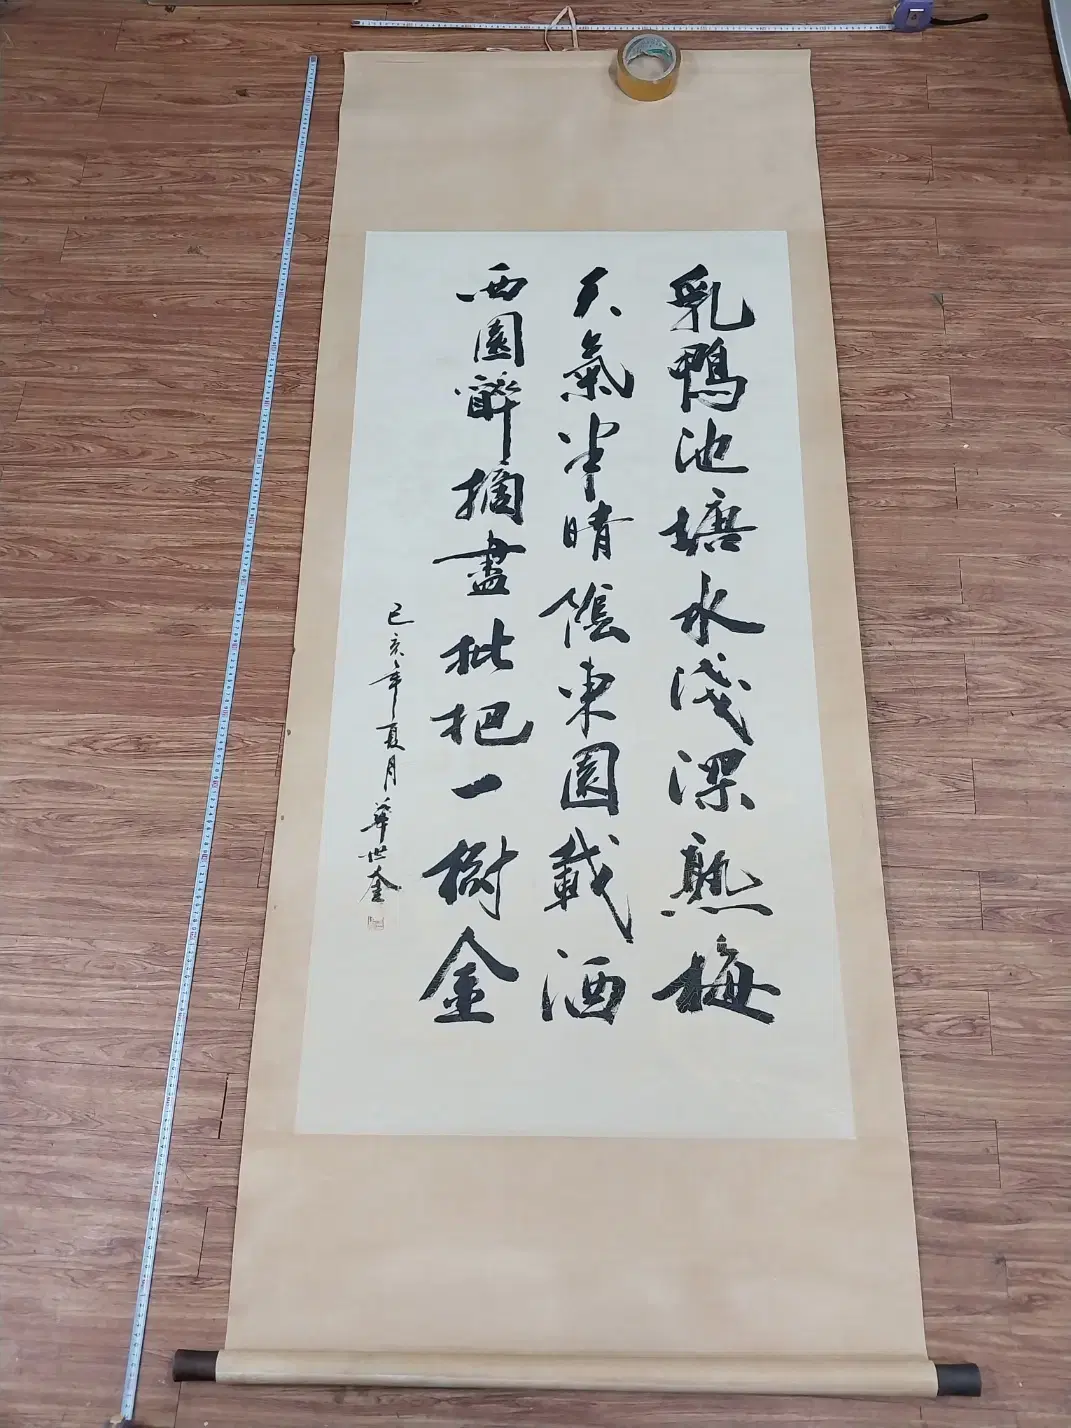 乳鴨池塘水淺深熟梅
天氣半晴陰東園載酒
西園醉摘盡枇杷一樹金
己亥年夏月華世奎